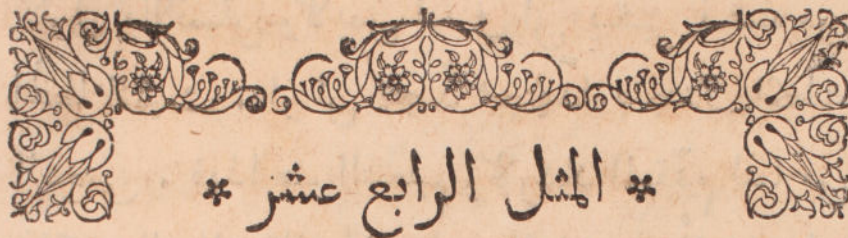 * المثل الرابع عشر *